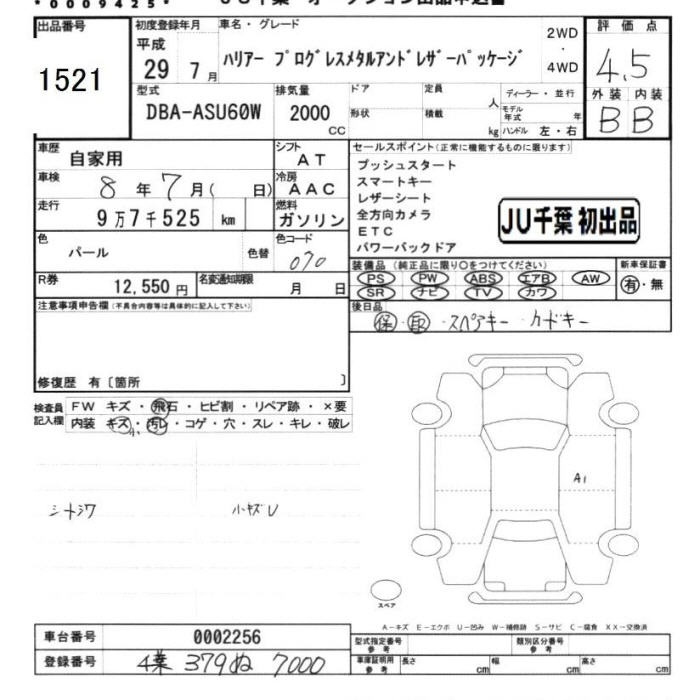 *0009425*
出品番号
1521
初度登録年月
平成
29 7月
車名・グレード
ハリアー プログレスメタルアンドレザーパッケージ
2WD
・
4WD
評価点
4.5
外装 内装
B B
型式
DBA-ASU60W
排気量
2000
CC
ドア
形状
定員
人
積載
kg
ディーラー・並行
モデル年式 年
ハンドル 左・右
車歴
自家用
シフト
AT
車検
8年7月( 日)
冷房
AAC
走行
9万7千525 km
燃料
ガソリン
セールスポイント(正常に機能するものに限ります)
プッシュスタート
スマートキー
レザーシート
全方向カメラ
ETC
パワーバックドア
JU千葉 初出品
色
パール
色替
色コード
070
装備品(純正品に限り○をつけてください)
PS PW ABS エアB AW
SR ナビ TV カワ
新車保証書
有・無
R券
12,550円
名変通知期限
月 日
後日品
保・取・スペアキー・カードキー
注意事項申告欄(不具合内容等は具体的に記入して下さい)
修復歴 有〔箇所 〕
検査員記入欄
FW キズ・飛石・ヒビ割・リペア跡・×要
内装 キズ・汚レ・コゲ・穴・スレ・キレ・破レ
小
シートシワ
小キズU
A1
スペア
A-キズ E-エクボ U-凹み W-補修跡 S-サビ C-腐食 XX-交換済
車台番号
0002256
登録番号
千葉 379 ぬ 7000
型式指定番号
参考
類別区分番号
参考
車庫証明用
参考
長さ cm
幅 cm
高さ cm